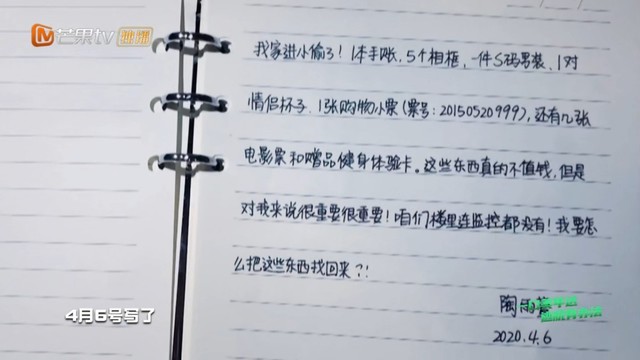 芒果tv
我家进小偷了！1本手账，5个相框，一件S码男装、1对
情侣杯子、1张购物小票（票号：20150520999），还有几张
电影票和赠品健身体验卡。这些东西真的不值钱，但是
对我来说很重要很重要！咱们楼里连监控都没有！我要怎
么把这些东西找回来？！
4月6号写了
陶雨
2020.4.6